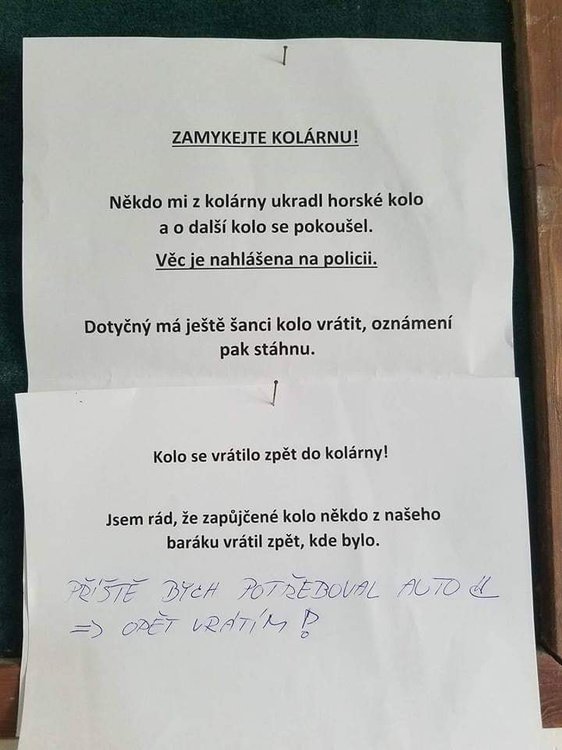 ZAMYKEJTE KOLÁRNU!
Někdo mi z kolárny ukradl horské kolo
a o další kolo se pokoušel.
Věc je nahlášena na policii.
Dotyčný má ještě šanci kolo vrátit, oznámení
pak stáhnu.
Kolo se vrátilo zpět do kolárny!
Jsem rád, že zapůjčené kolo někdo z našeho
baráku vrátil zpět, kde bylo.
PŘÍŠTĚ BYCH POTŘEBOVAL AUTO
=> OPĚT VRÁTÍM!